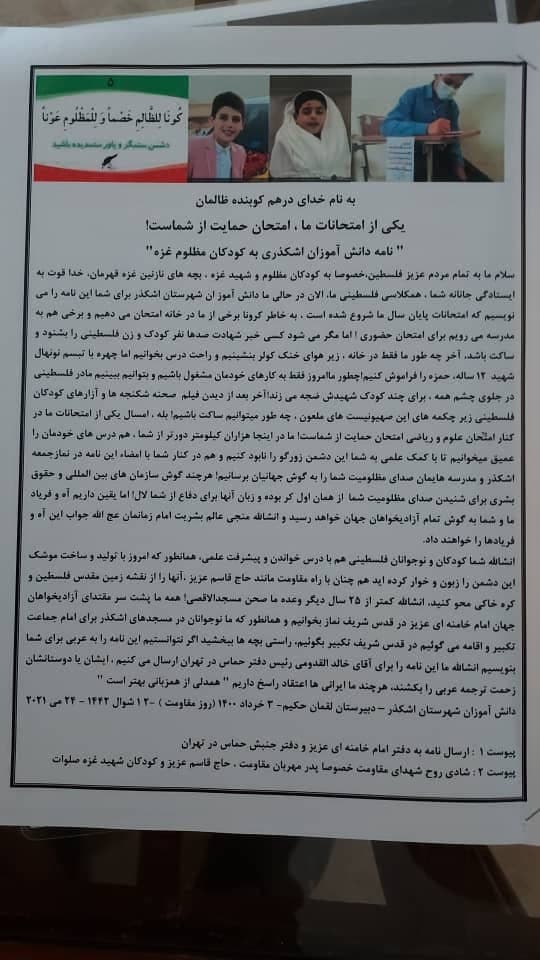 ۵
كُونَا لِلظَّالِمِ خَصْماً وَ لِلْمَظْلُومِ عَوْناً
دشمن ستمگر و یاور ستمدیده باشید
به نام خدای درهم کوبنده ظالمان
یکی از امتحانات ما ، امتحان حمایت از شماست!
" نامه دانش آموزان اشکذری به کودکان مظلوم غزه"
سلام ما به تمام مردم عزیز فلسطین،خصوصا به کودکان مظلوم و شهید غزه ، بچه های نازنین غزه قهرمان، خدا قوت به
ایستادگی جانانه شما ، همکلاسی فلسطینی ما، الان در حالی ما دانش آموز ان شهرستان اشکذر برای شما این نامه را می
نویسیم که امتحانات پایان سال ما شروع شده است ، به خاطر کرونا برخی از ما در خانه امتحان می دهیم و برخی هم به
مدرسه می رویم برای امتحان حضوری ! اما مگر می شود کسی خبر شهادت صدها نفر کودک و زن فلسطینی را بشنود و
ساکت باشد، آخر چه طور ما فقط در خانه ، زیر هوای خنک کولر بنشینیم و راحت درس بخوانیم اما چهره با تبسم نونهال
شهید ۱۲ ساله، حمزه را فراموش کنیم!چطور ماامروز فقط به کارهای خودمان مشغول باشیم و بتوانیم ببینیم مادر فلسطینی
در جلوی چشم همه ، برای چند کودک شهیدش ضجه می زند!آخر بعد از دیدن فیلم صحنه شکنجه ها و آزارهای کودکان
فلسطینی زیر چکمه های این صهیونیست های ملعون ، چه طور میتوانیم ساکت باشیم! بله ، امسال یکی از امتحانات ما در
کنار امتحان علوم و ریاضی امتحان حمایت از شماست! ما در اینجا هزاران کیلومتر دورتر از شما ، هم درس های خودمان را
عمیق میخوانیم تا با کمک علمی به شما این دشمن زورگو را نابود کنیم و هم در کنار شما با امضاء این نامه در نمازجمعه
اشکذر و مدرسه هایمان صدای مظلومیت شما را به گوش جهانیان برسانیم! هرچند گوش سازمان های بین المللی و حقوق
بشری برای شنیدن صدای مظلومیت شما از همان اول کر بوده و زبان آنها برای دفاع از شما لال! اما یقین داریم آه و فریاد
ما و شما به گوش تمام آزادیخواهان جهان خواهد رسید و انشالله منجی عالم بشریت امام زمانمان عج الله جواب این آه و
فریادها را خواهند داد.
انشالله شما کودکان و نوجوانان فلسطینی هم با درس خواندن و پیشرفت علمی، همانطور که امروز با تولید و ساخت موشک
این دشمن را زبون و خوار کرده اید هم چنان با راه مقاومت مانند حاج قاسم عزیز ،آنها را از نقشه زمین مقدس فلسطین و
کره خاکی محو کنید، انشالله کمتر از ۲۵ سال دیگر وعده ما صحن مسجدالاقصی! همه ما پشت سر مقتدای آزادیخواهان
جهان امام خامنه ای عزیز در قدس شریف نماز بخوانیم و همانطور که ما نوجوانان در مسجدهای اشکذر برای امام جماعت
تکبیر و اقامه می گوئیم در قدس شریف تکبیر بگوئیم، راستی بچه ها ببخشید اگر نتوانستیم این نامه را به عربی برای شما
بنویسیم انشالله ما این نامه را برای آقای خالد القدومی رئیس دفتر حماس در تهران ارسال می کنیم ، ایشان یا دوستانشان
زحمت ترجمه عربی را بکشند، هرچند ما ایرانی ها اعتقاد راسخ داریم " همدلی از همزبانی بهتر است "
دانش آموزان شهرستان اشکذر – دبیرستان لقمان حکیم- ۳ خرداد ۱۴۰۰ (روز مقاومت ) -۱۲ شوال ۱۴۴۲ - ۲۴ می ۲۰۲۱
پیوست ۱ : ارسال نامه به دفتر امام خامنه ای عزیز و دفتر جنبش حماس در تهران
پیوست ۲ : شادی روح شهدای مقاومت خصوصا پدر مهربان مقاومت ، حاج قاسم عزیز و کودکان شهید غزه صلوات